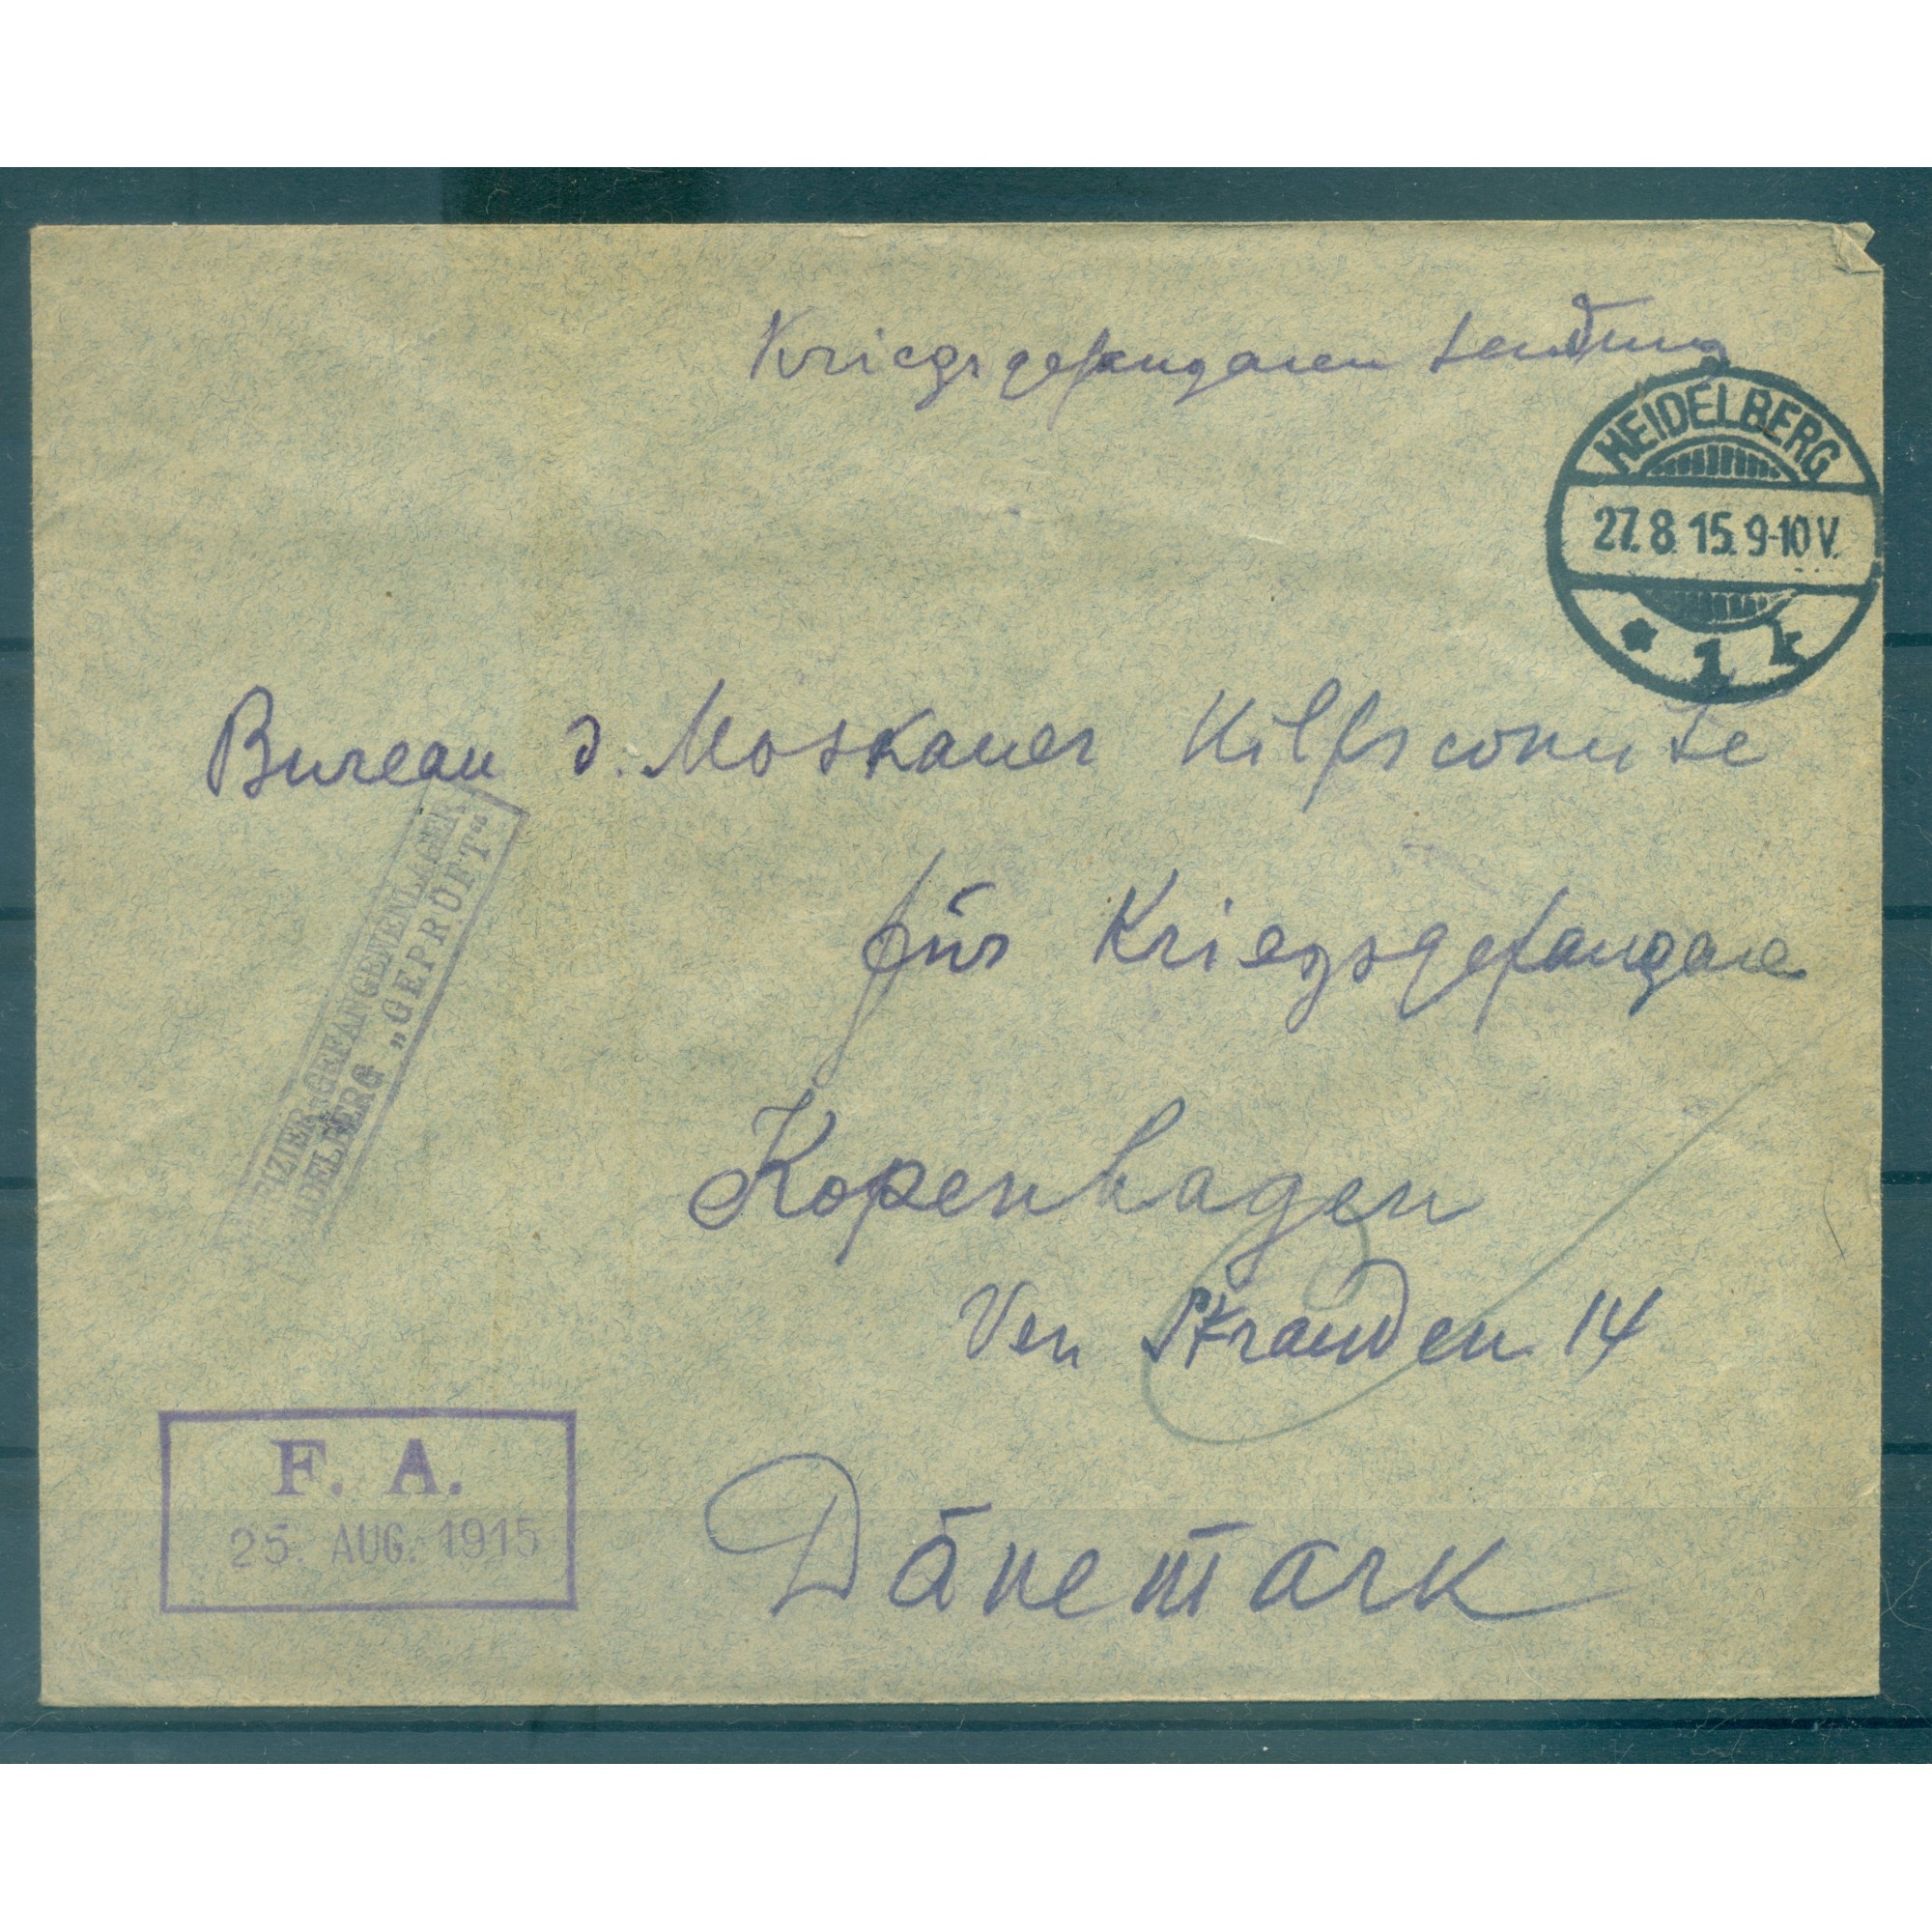 Kriegsgefangenen Sendung
HEIDELBERG
27.8.15.9-10V.
* 1 k
Bureau d. Moskauer Hilfscomite
für Kriegsgefangene
Kopenhagen
Ven Stranden 14
Dänemark
OFFIZIER-GEFANGENENLAGER
HEIDELBERG „GEPRÜFT“
F. A.
25. AUG. 1915